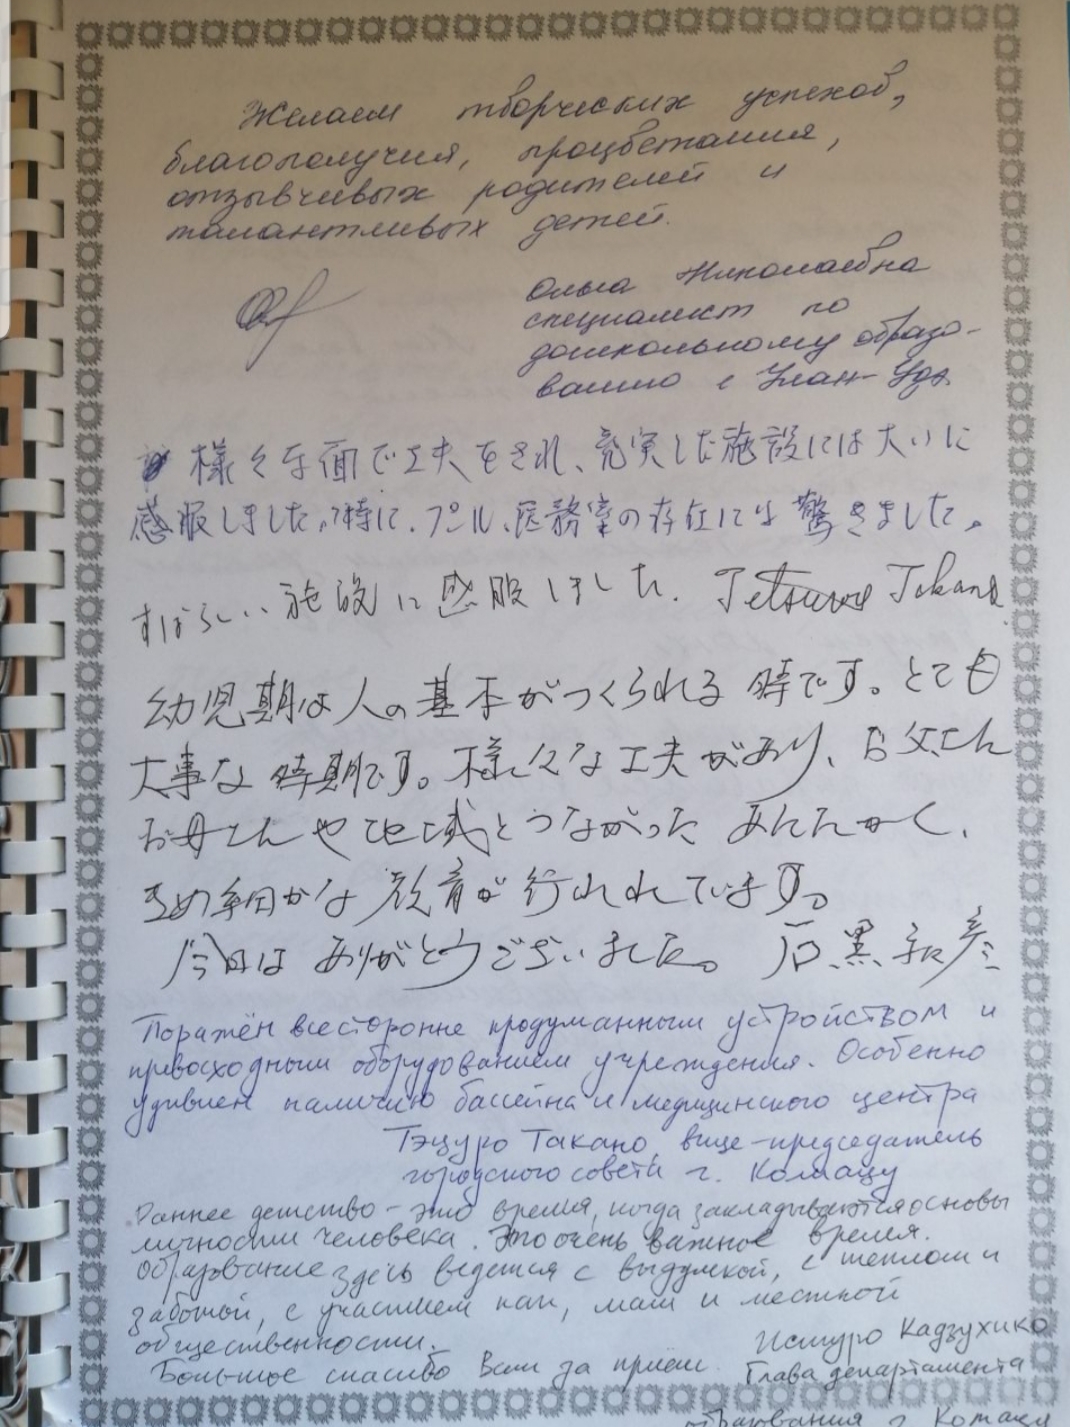 Желаем творческих успехов,
благополучия, процветания,
отзывчивых родителей и
талантливых детей.
Ольга Николаевна
специалист по
дошкольному образо-
ванию г Улан-Удэ
様々な面で工夫をされ、充実した施設には大いに
感服しました。特に、プール、医務室の存在には驚きました。
すばらしい施設に感服しました. Tetsuro Takano
幼児期は人の基本がつくられる時です。とても
大事な時期です。様々な工夫があり、お父さん
お母さんや地域とつながったあたたかく、
きめ細かな教育が行われています。
今日はありがとうございました。 石黒和彦
Поражён всесторонне продуманным устройством и
превосходным оборудованием учреждения. Особенно
удивлен наличию бассейна и медицинского центра
Тэцуро Такано, вице-председатель
городского совета г. Комацу
Раннее детство - это время, когда закладываются основы
личности человека. Это очень важное время.
Образование здесь ведется с выдумкой, с теплом и
заботой, с участием пап, мам и местной
общественности.
Исиуро Кадзухико
Большое спасибо Вам за прием.
Глава департамента
образования г. Комацу